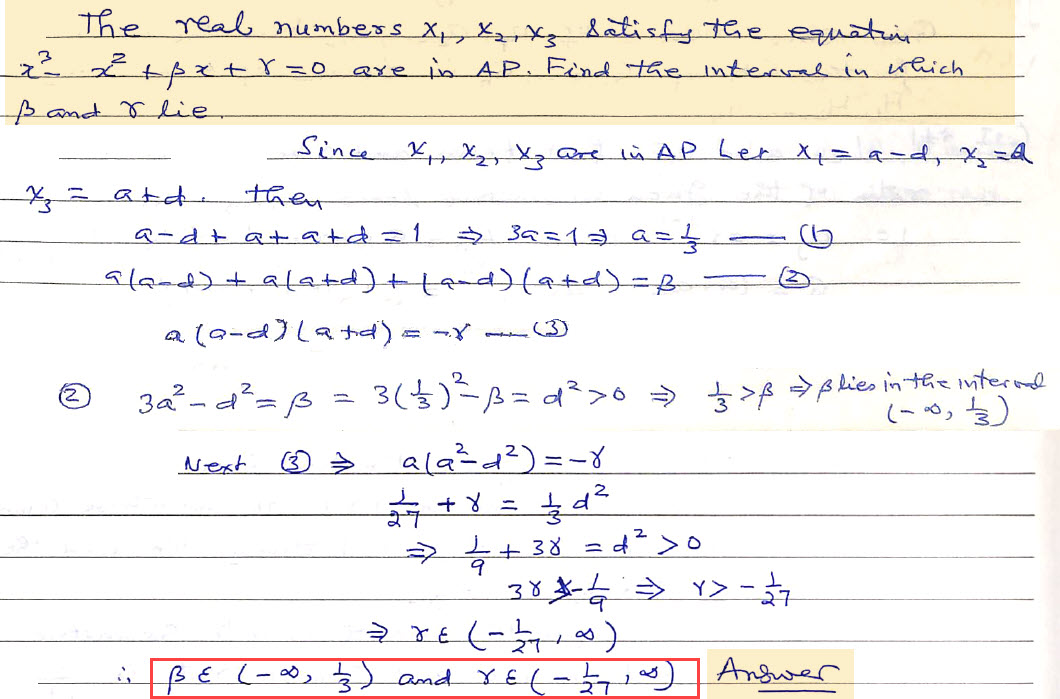 The real numbers x₁, x₂, x₃ satisfy the equation
x³ - x² + βx + γ = 0 are in AP. Find the interval in which
β and γ lie.
Since x₁, x₂, x₃ are in AP Let x₁ = a-d, x₂ = a
x₃ = a+d. then
a-d + a + a+d = 1 ⇒ 3a = 1 ⇒ a = 1/3 — (1)
a(a-d) + a(a+d) + (a-d)(a+d) = β — (2)
a(a-d)(a+d) = -γ — (3)
(2) 3a² - d² = β = 3(1/3)² - β = d² > 0 ⇒ 1/3 > β ⇒ β lies in the interval
(-∞, 1/3)
Next (3) ⇒ a(a² - d²) = -γ
1/27 + γ = 1/3 d²
⇒ 1/9 + 3γ = d² > 0
3γ > -1/9 ⇒ γ > -1/27
⇒ γ ∈ (-1/27, ∞)
∴ β ∈ (-∞, 1/3) and γ ∈ (-1/27, ∞) Answer